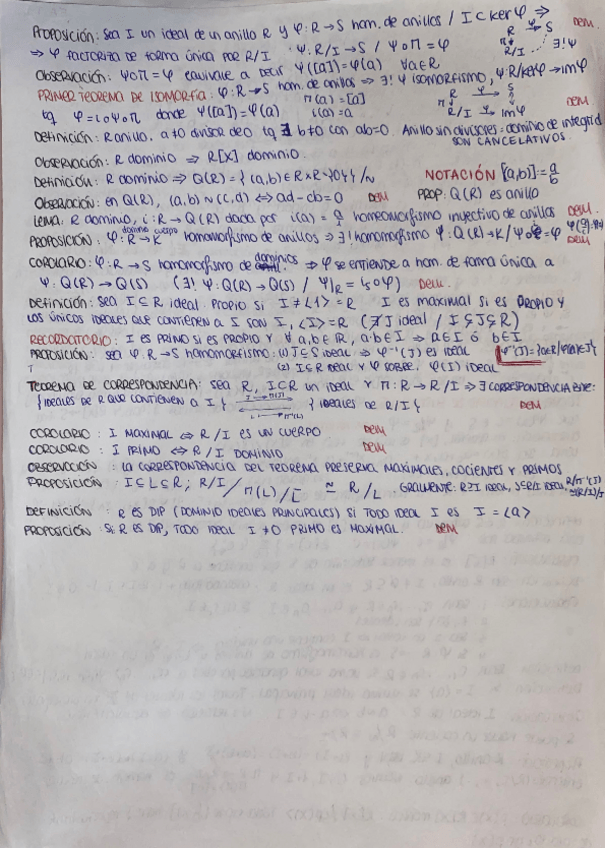 PROPOSICIÓN: Sea I un ideal de un anillo R y φ: R → S hom. de anillos / I ⊂ ker φ ⇒ DEM.
⇒ φ factoriza de forma única por R/I ψ: R/I → S / ψ∘π = φ R φ→ S π↓ R/I ∃!ψ
OBSERVACIÓN: ψ∘π = φ equivale a decir ψ([a]) = φ(a) ∀a∈R
PRIMER TEOREMA DE ISOMORFÍA: φ: R → S hom. de anillos ⇒ ∃! ψ isomorfismo, ψ: R/ker φ → im φ
tq φ = i∘ψ∘π donde ψ([a]) = φ(a) π(a) = [a] i(a) = a R φ→ S π↓ R/I ψ→ im φ DEM
DEFINICIÓN: R anillo. a≠0 divisor de 0 tq ∃ b≠0 con ab=0. Anillo sin divisores = dominio de integrid
SON CANCELATIVOS.
OBSERVACIÓN: R dominio ⇒ R[X] dominio.
DEFINICIÓN: R dominio ⇒ Q(R) = {(a,b) ∈ R×R\{0}} / ~ NOTACIÓN [(a,b)] := a/b
OBSERVACIÓN: en Q(R), (a,b) ~ (c,d) ⟺ ad - cb = 0 DEM PROP: Q(R) es anillo
LEMA: R dominio, i: R → Q(R) dada por i(a) = a/1 homeomorfismo inyectivo de anillos DEM.
PROPOSICIÓN: φ: R → K dominio cuerpo homomorfismo de anillos ⇒ ∃! homomorfismo ψ: Q(R) → K / ψ∘i = φ DEM
COROLARIO: φ: R → S homomorfismo de dominios ⇒ φ se entiende a hom. de forma única a
ψ: Q(R) → Q(S) (∃! ψ: Q(R) → Q(S) / ψ|R = i∘φ) Dem.
DEFINICIÓN: Sea I ⊆ R ideal. Propio si I ≠ ⟨1⟩ = R I es maximal si es PROPIO y
los únicos ideales que contienen a I son I, ⟨1⟩ = R (∄ J ideal / I ⊊ J ⊊ R)
RECORDATORIO: I es PRIMO si es PROPIO y ∀ a,b ∈ R, a·b ∈ I ⇒ a∈I ó b∈I
PROPOSICIÓN: sea φ: R → S homomorfismo: (1) J ⊆ S ideal ⇒ φ⁻¹(J) es ideal φ⁻¹(J) = {a∈R/φ(a)∈J}
(2) I ⊆ R ideal y φ SOBRE. φ(I) ideal
TEOREMA DE CORRESPONDENCIA: sea R, I ⊂ R un ideal y π: R → R/I ⇒ ∃ CORRESPONDENCIA ENTRE:
{IDEALES DE R QUE CONTIENEN A I} ⇄ {IDEALES DE R/I} DEM
COROLARIO: I MAXIMAL ⟺ R/I ES UN CUERPO DEM
COROLARIO: I PRIMO ⟺ R/I DOMINIO DEM
OBSERVACIÓN: LA CORRESPONDENCIA DEL TEOREMA PRESERVA MAXIMALES, COCIENTES Y PRIMOS
PROPOSICIÓN: I ⊆ L ⊆ R; R/I / π(L)/I ≅ R/L
DEFINICIÓN: R ES DIP (DOMINIO IDEALES PRINCIPALES) SI TODO IDEAL I ES I = ⟨a⟩
PROPOSICIÓN: Si R ES DIP, TODO IDEAL I ≠ 0 PRIMO ES MAXIMAL. DEM